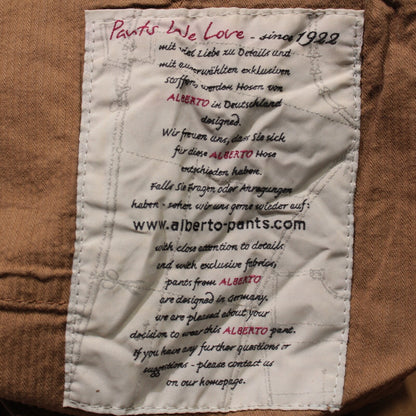 Pants We Love - since 1922
mit viel Liebe zu Details und
mit auserwählten exklusiven
Stoffen, werden Hosen von
ALBERTO in Deutschland
designed.
Wir freuen uns, dass Sie sich
für diese ALBERTO Hose
entschieden haben.
Falls Sie Fragen oder Anregungen
haben - sehen wir uns gerne wieder auf:
www.alberto-pants.com
with close attention to details
and with exclusive fabrics,
pants from ALBERTO
are designed in Germany.
we are pleased about your
decision to wear this ALBERTO pant.
If you have any further questions or
suggestions - please contact us
on our homepage.